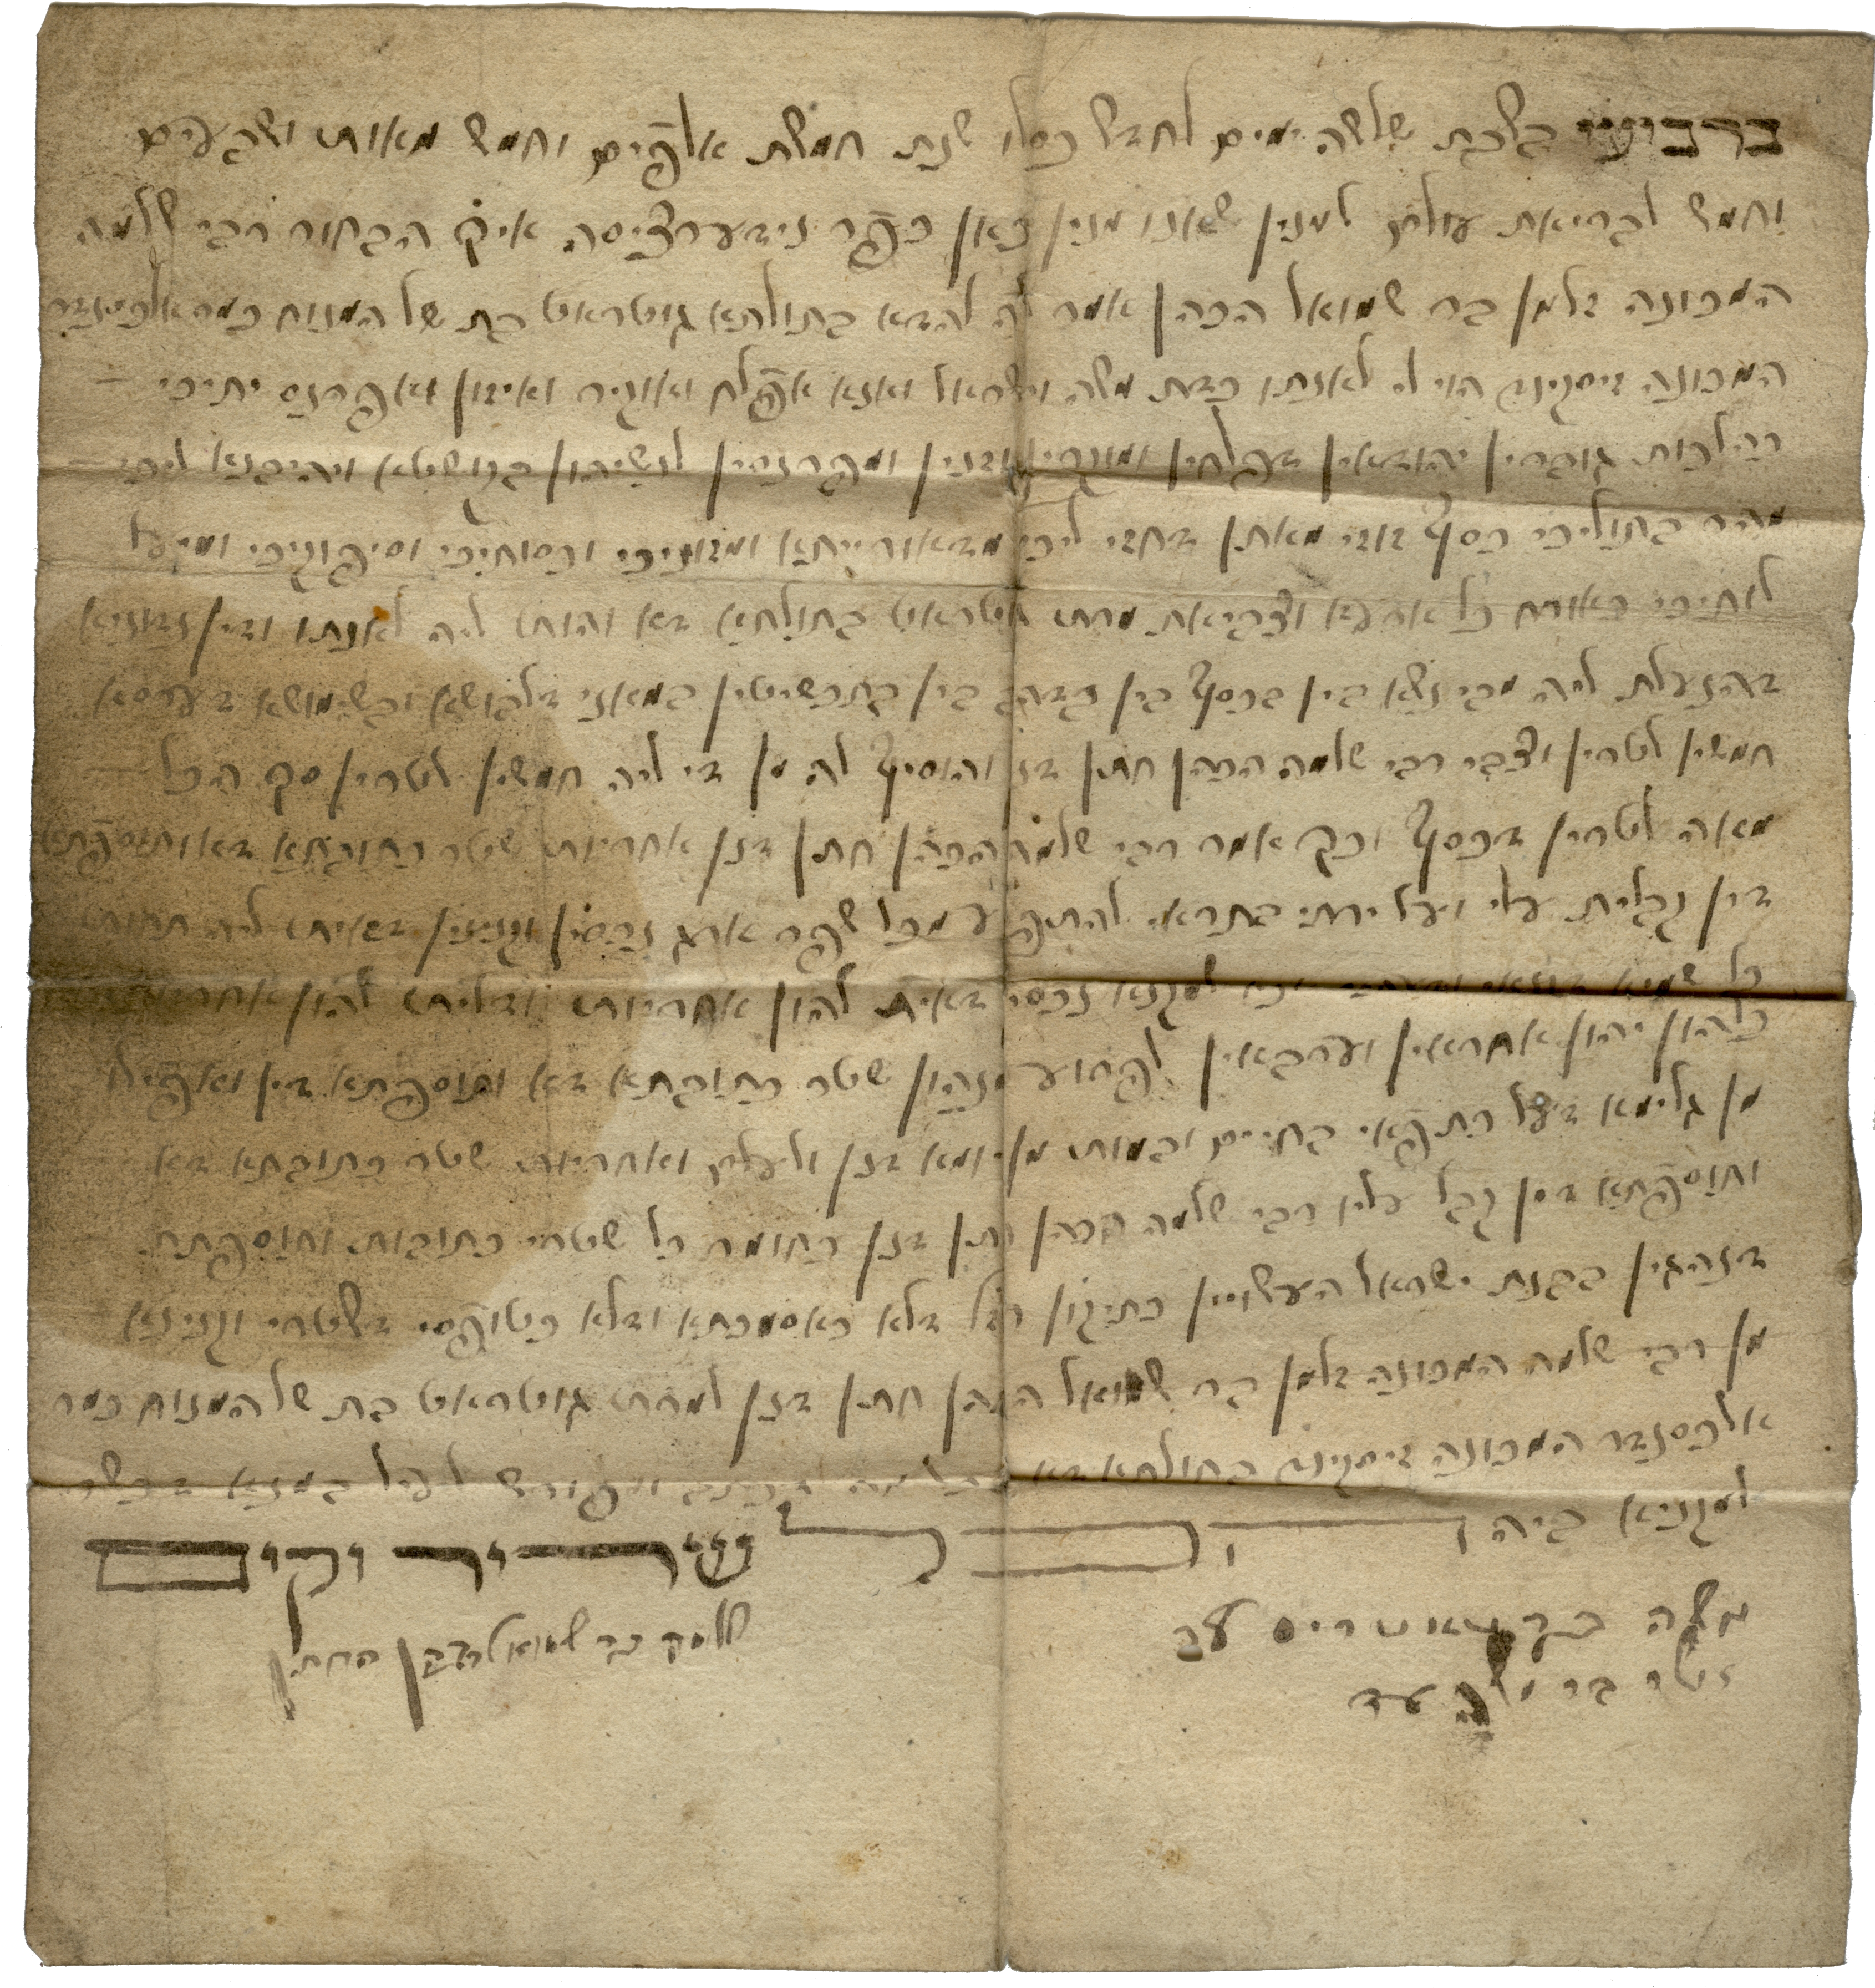 ברביעי בשבת שלשה ימים לחדש כסלו שנת חמשת אלפים וחמש מאות ושבעים
וחמש לבריאת עולם למנין שאנו מנין כאן כפר נידערצייסה איך הבחור רבי שלמה
המכונה זלמן בר שמואל הכהן אמר לה להדא בתולתא גוטראט בת של המנוח כמר אלכסנדר
המכונה זיסקינד הוי לי לאנתו כדת משה וישראל ואנא אפלח ואוקיר ואיזון ואפרנס יתיכי
כהלכות גוברין יהודאין דפלחין ומוקרין וזנין ומפרנסין לנשיהון בקושטא ויהיבנא ליכי
מהר בתוליכי כסף זוזי מאתן דחזי ליכי מדאורייתא ומזוניכי וכסותיכי וסיפוקיכי ומיעל
לותיכי כאורח כל ארעא וצביאת מרת גוטראט בתולתא דא והות ליה לאנתו ודין נדוניא
דהנעלת ליה מבי נשא בין בכסף בין בדהב בין בתכשיטין במאני דלבושא ובשימושא דערסא
חמשין לטרין וצבי רבי שלמה הכהן חתן דנן והוסיף לה מן די ליה חמשין לטרין סך הכל
מאה לטרין דכסף וכך אמר רבי שלמה הכהן חתן דנן אחריות שטר כתובתא דא ותוספתא
דין קבלית עלי ועל ירתי בתראי להתפרע מכל שפר ארג נכסין וקנינין דאית לי תחות
כל שמיא דקנאי ודעתיד אנא למקנא נכסי דאית להון אחריות ודלית להון אחריות
כלהון יהון אחראין וערבאין לפרוע מנהון שטר כתובתא דא ותוספתא דין ואפילו
מן גלימא דעל כתפאי בחיים ובמות מן יומא דנן ולעלם ואחריות שטר כתובתא דא
ותוספתא דין קבל עליו רבי שלמה הכהן חתן דנן כחומר כל שטרי כתובות ותוספתת
דנהגין בבנת ישראל העשויין כתיקון חזל דלא כאסמכתא ודלא כטופסי דשטרי וקנינא
מן רבי שלמה המכונה זלמן בר שמואל הכהן חתן דנן למרת גוטראט בת של המנוח כמר
אלכסנדר המכונה זיסקינד בתולתא דא בכל מה דכתב ומפורש לעיל במנא דכשר
למקניא ביה והכל שריר וקים
משה עד
בר משה עד
שלמה בר שמואל הכהן החתן